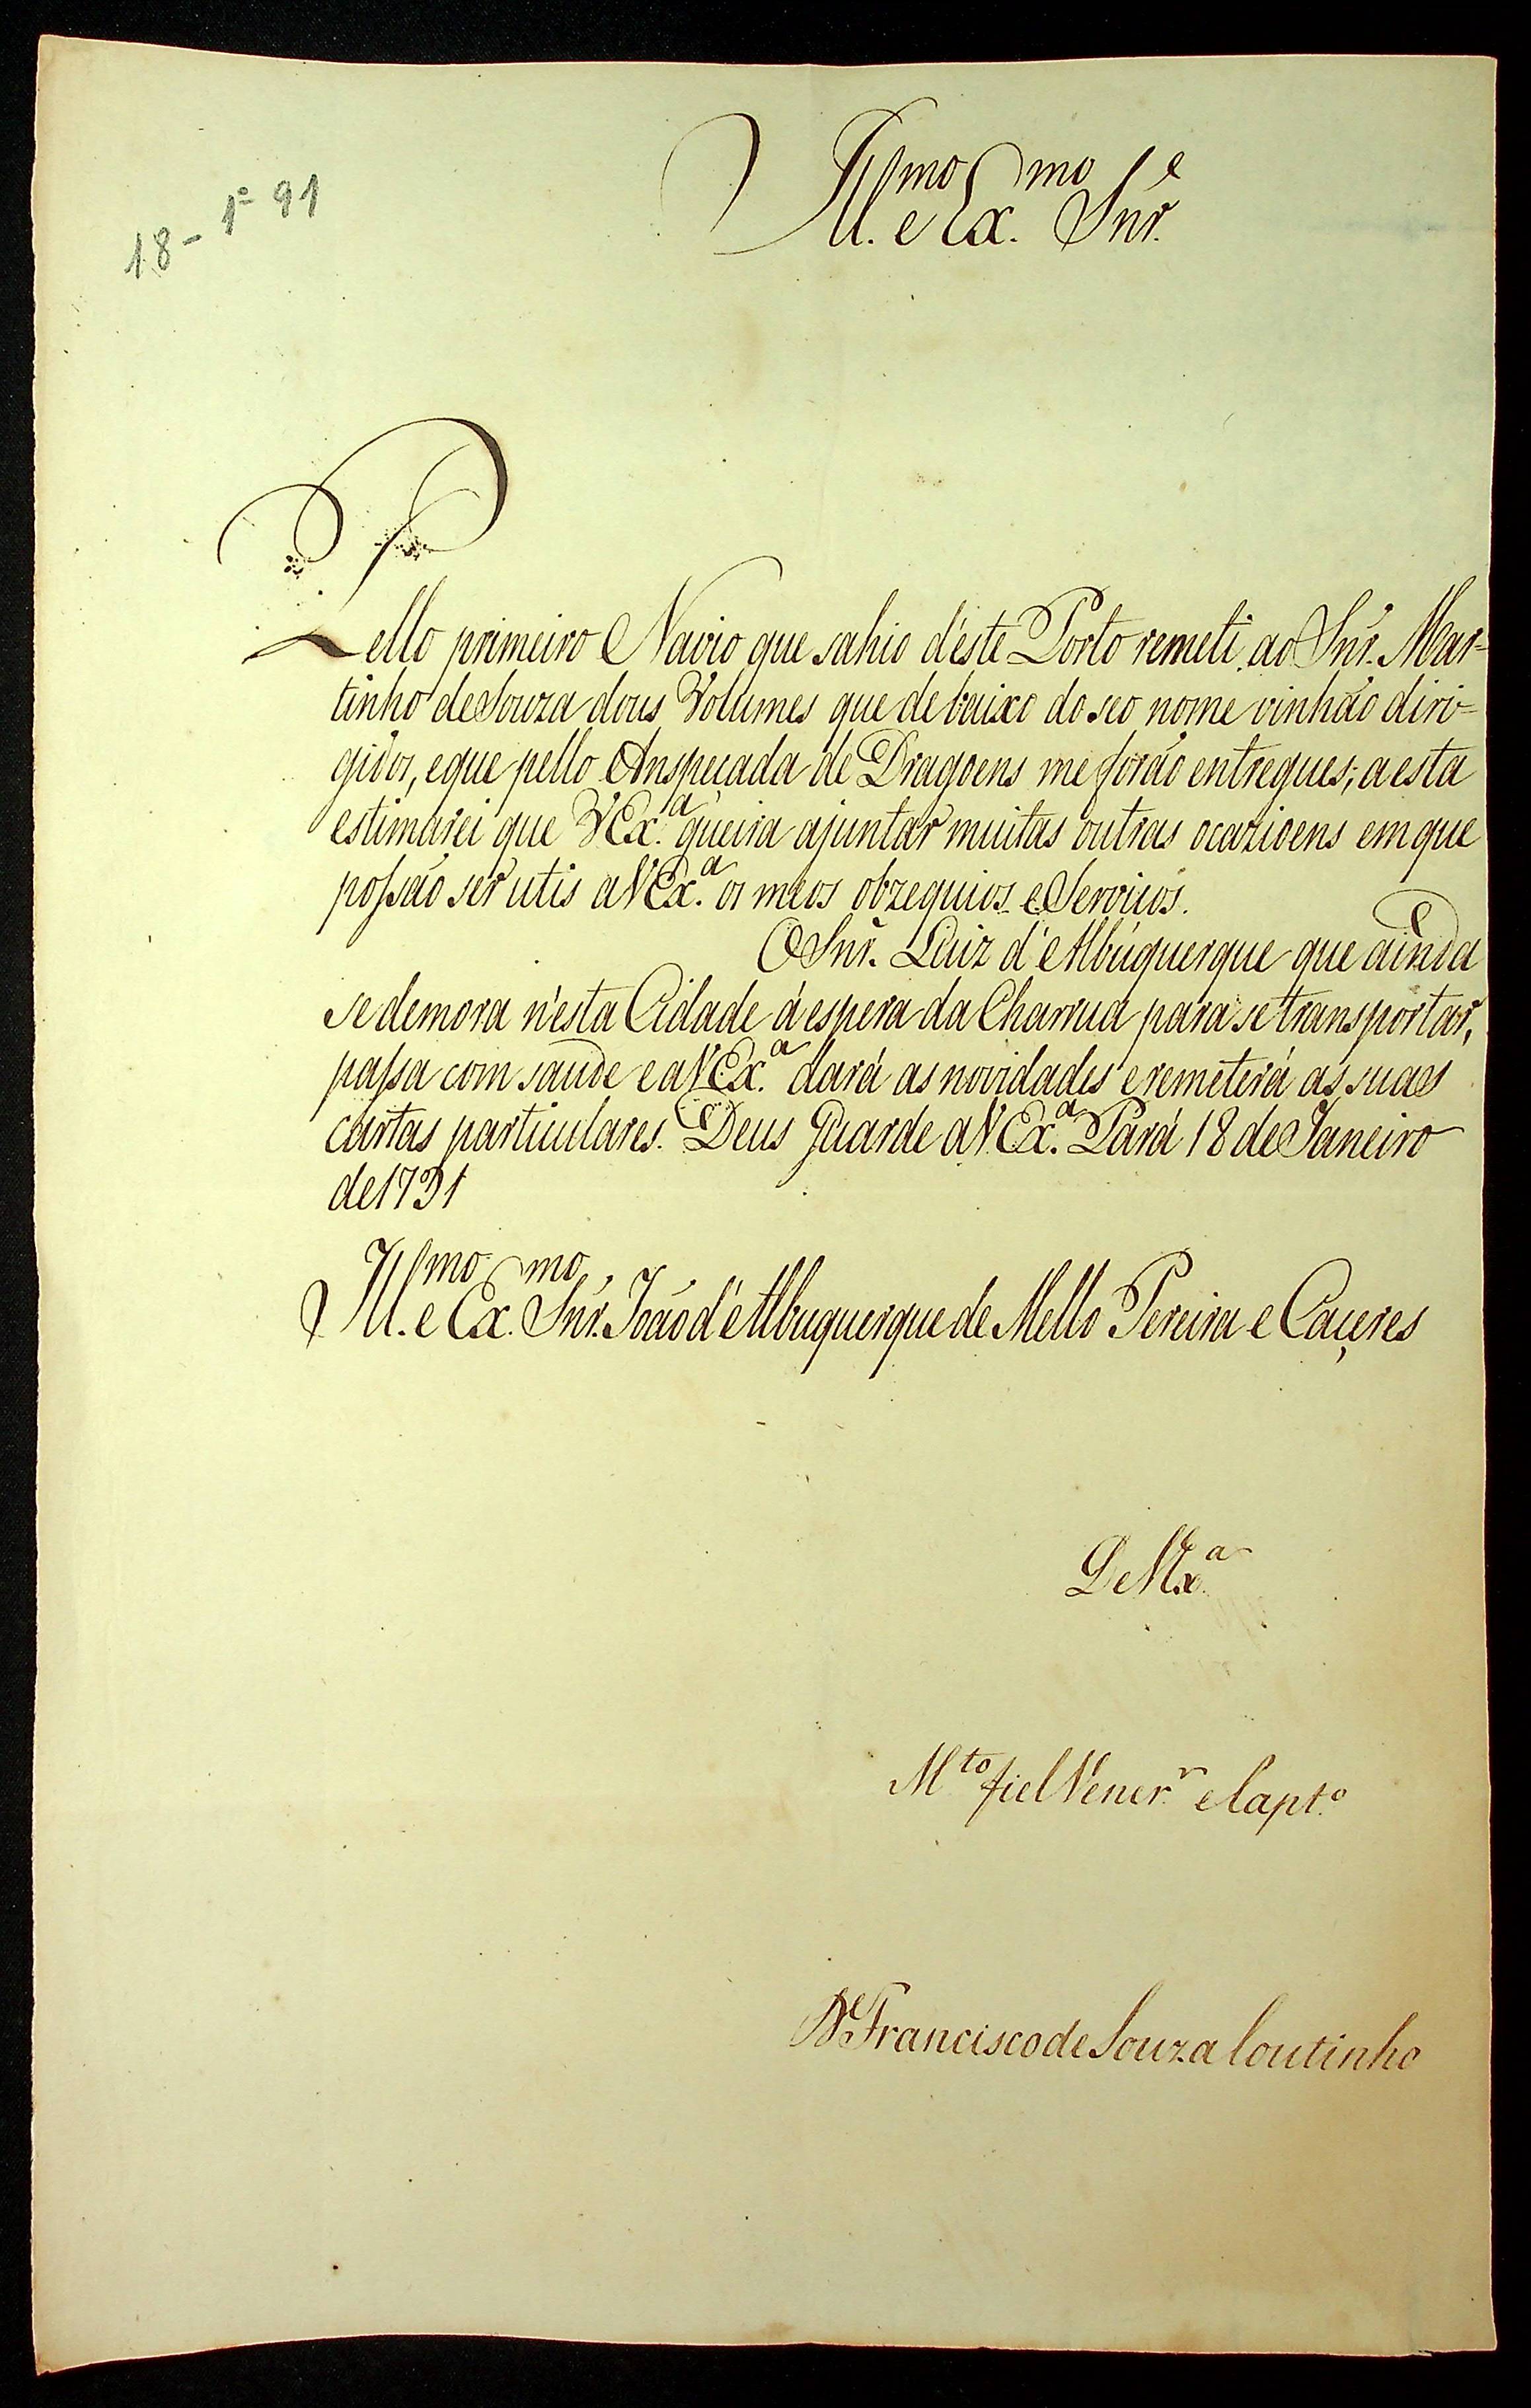 18 - 1º 91
Ill.mo e Ex.mo Snr.
Pello primeiro Navio que sahio d'éste Porto remeti ao Snr. Mar=
tinho de Souza dous Volumes que debaixo do seo nome vinhão diri=
gidos, e que pello Anspecada de Dragoens me forão entregues; a esta
estimarei que V Ex.a queira ajuntar muitas outras ocazioens em que
possão ser utis a V Ex.a os meos obzequios e Serviços.
O Snr. Luiz d'Albuquerque que ainda
se demora n'esta Cidade á espera da Charrua para se transportar,
passa com saude e a V Ex.a dará as novidades e remeterá as suas
cartas particulares. Deus Guarde a V Ex.a Pará 18 de Janeiro
de 1791
Ill.mo e Ex.mo Snr. João d'Albuquerque de Mello Pereira e Caçeres
De V Ex.a
M.to fiel Vener.r e Capt.o
D. Francisco de Souza Coutinho